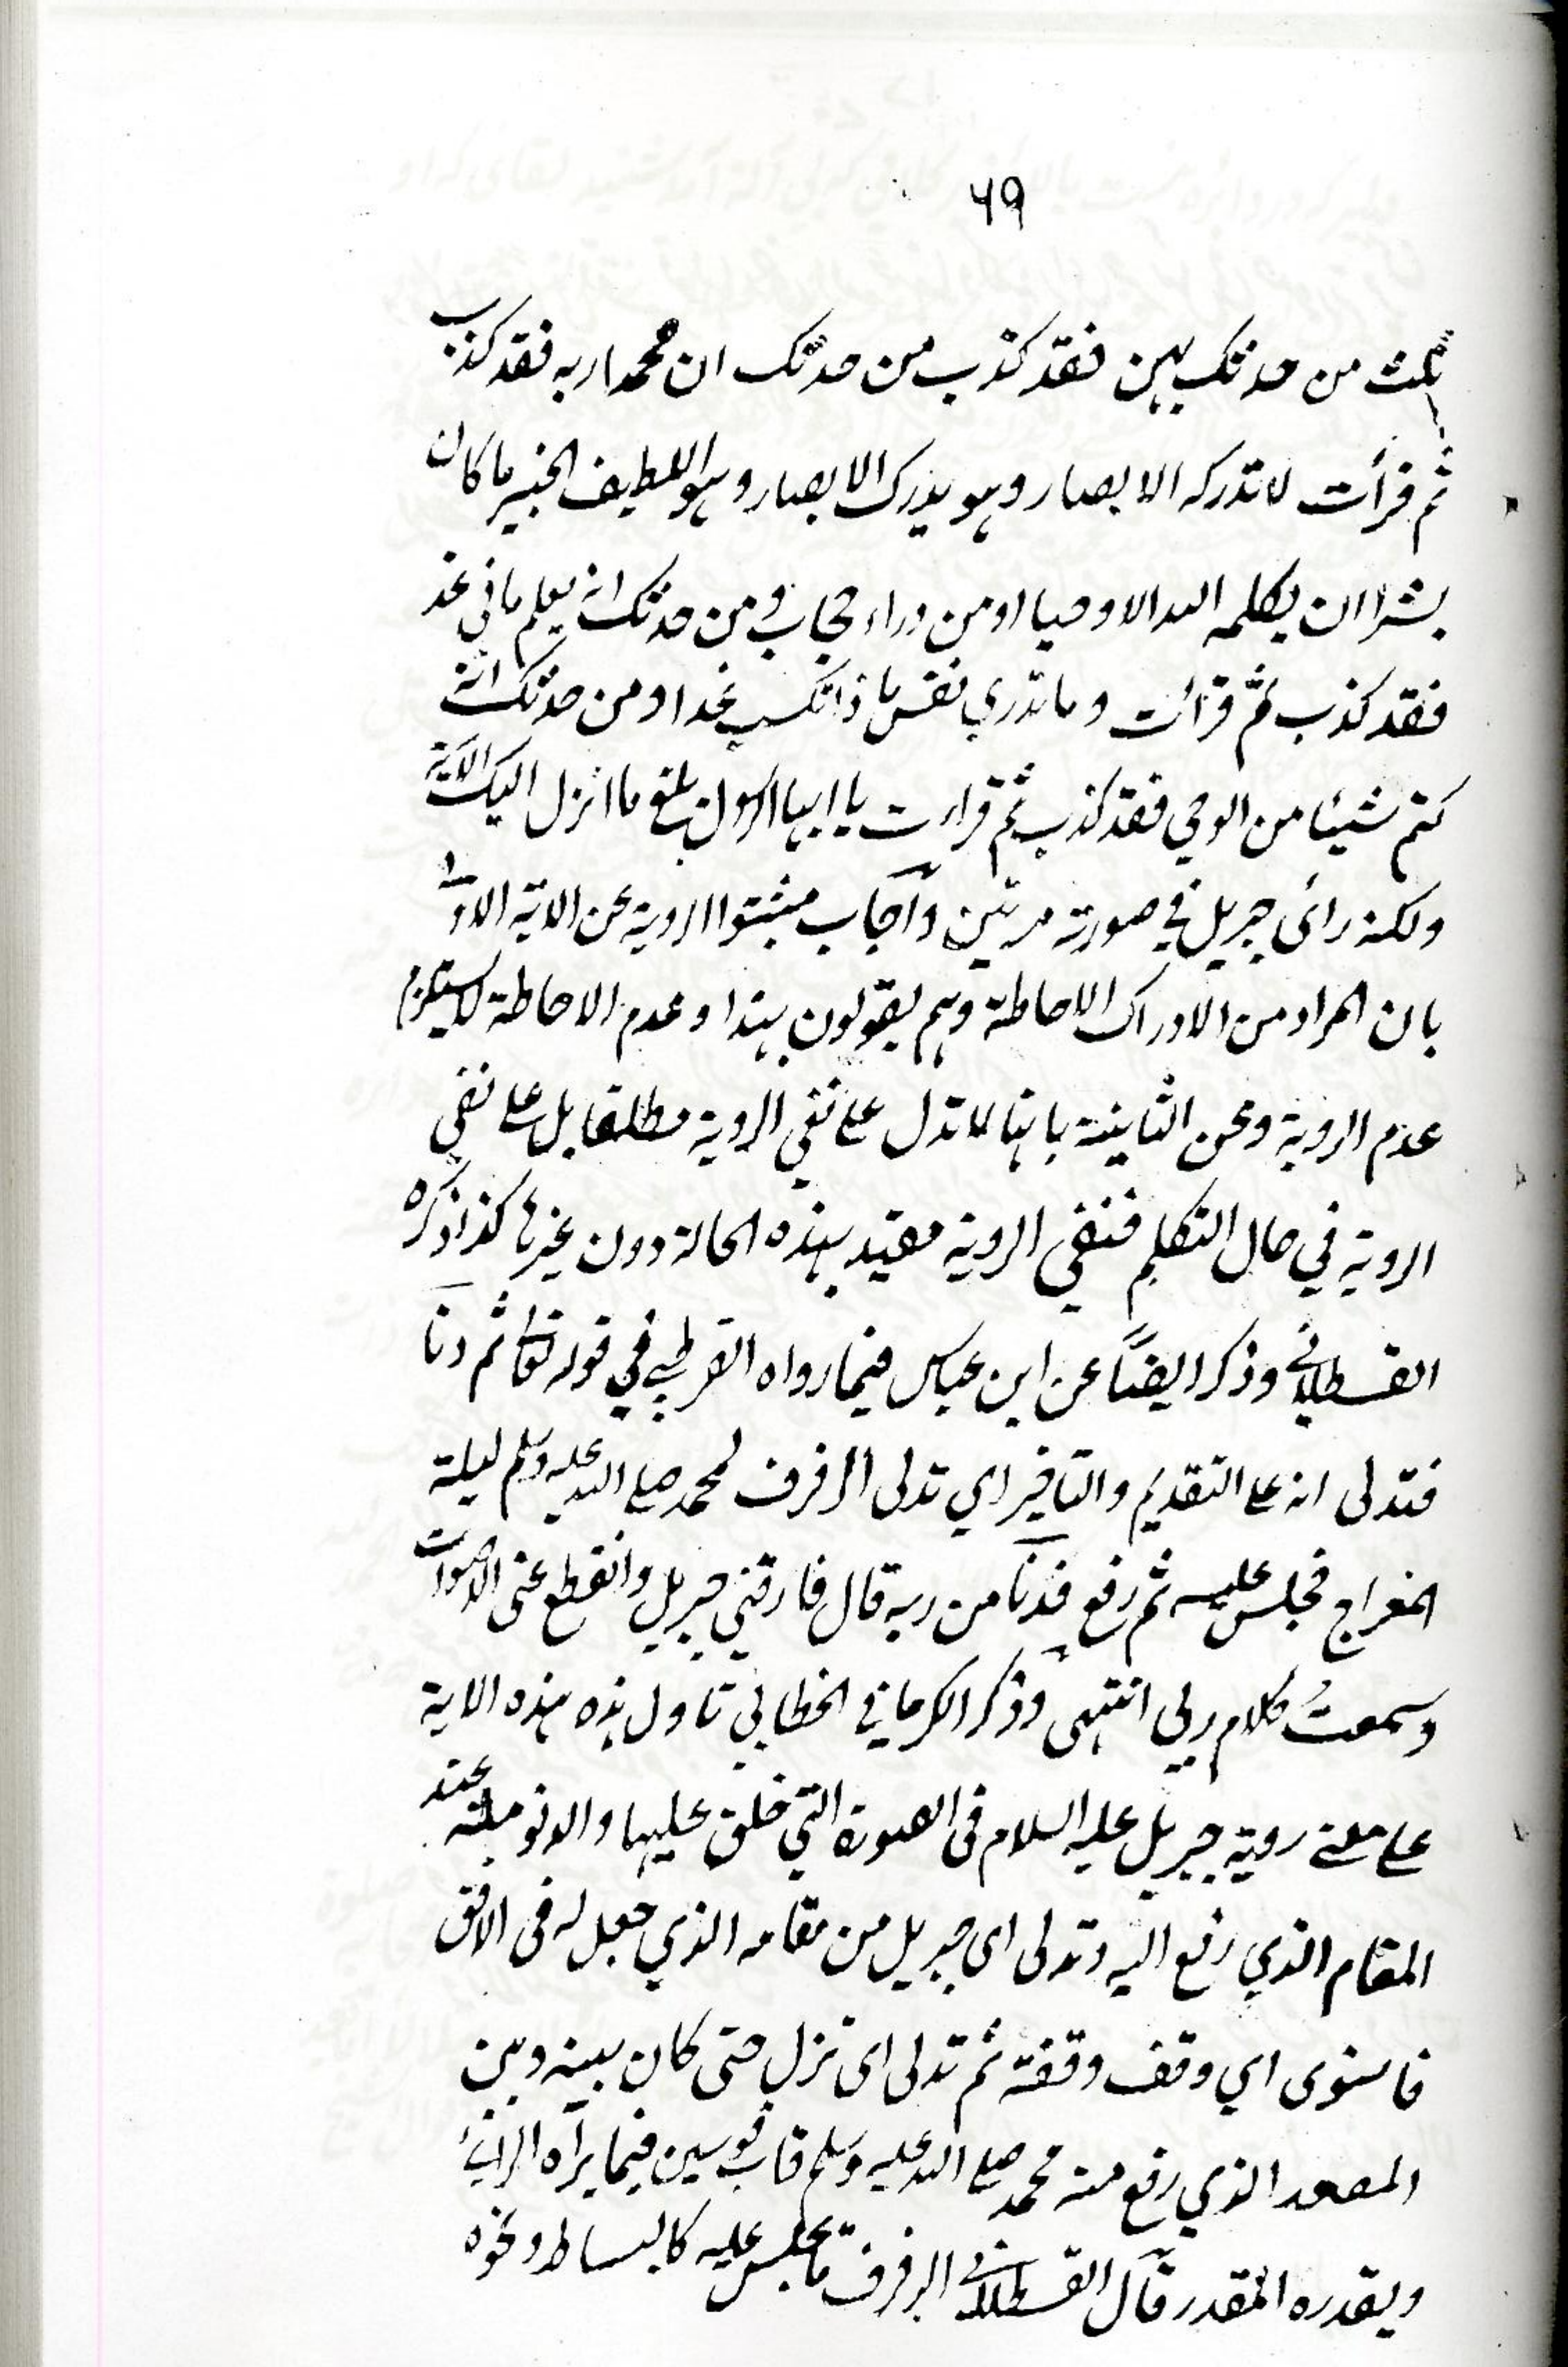 ٦٩
ثلث من حدثكهن فقد كذب من حدثك ان محمدا ربه فقد كذب
ثم قرأت لا تدركه الابصار وهو يدرك الابصار وهو اللطيف الخبير ما كان
بشرا ان يكلمه الله الا وحيا او من وراء حجاب ومن حدثك انه يعلم ما في غد
فقد كذب ثم قرأت وما تدري نفس ما ذا تكسب غدا ومن حدثك انه
كتم شيئا من الوحي فقد كذب ثم قراءت يا ايها الرسول بلغ ما انزل اليك الآية
ولكنه رائى جبريل في صورته مرتين وآجاب مثبتوا الروية عن الاية الاولى
بان المراد من الادراك الاحاطة وهم يقولون بهذا وعدم الاحاطة لا يستلزم
عدم الروية وعن الثانية بانها لا تدل على نفي الروية مطلقا بل على نفي
الروية في حال التكلم فنفي الروية مقيد بهذه الحالة دون غيرها كذا ذكره
القسطلاني وذكر ايضًا عن ابن عباس فيما رواه القرطبي في قوله تعالى ثم دنا
فتدلى انه على التقديم والتاخير اي تدلى الرفرف لمحمد صلى الله عليه وسلم ليلة
المعراج فجلس عليه ثم رفع فدنا من ربه قال فارقني جبريل وانقطع عنى الاصوات
وسمعتُ كلام ربي انتهى وذكر الكرماني الخطابي تاول هذه هذه الاية
على معنى روية جبريل عليه السلام فى الصورة التي خلق عليها والدنو منه عند
المقام الذي رفع اليه وتدلى اى جبريل من مقامه الذي جعل له فى الافق
فاستوى اي وقف وقفة ثم تدلى اى نزل حتى كان بينه وبين
المصعد الذي رفع منه محمد صلى الله عليه وسلم قاب قوسين فيما يراه الرائي
ويقدره المقدر قال القسطلاني الرفرف ما يجلس عليه كالبساط ونحوه